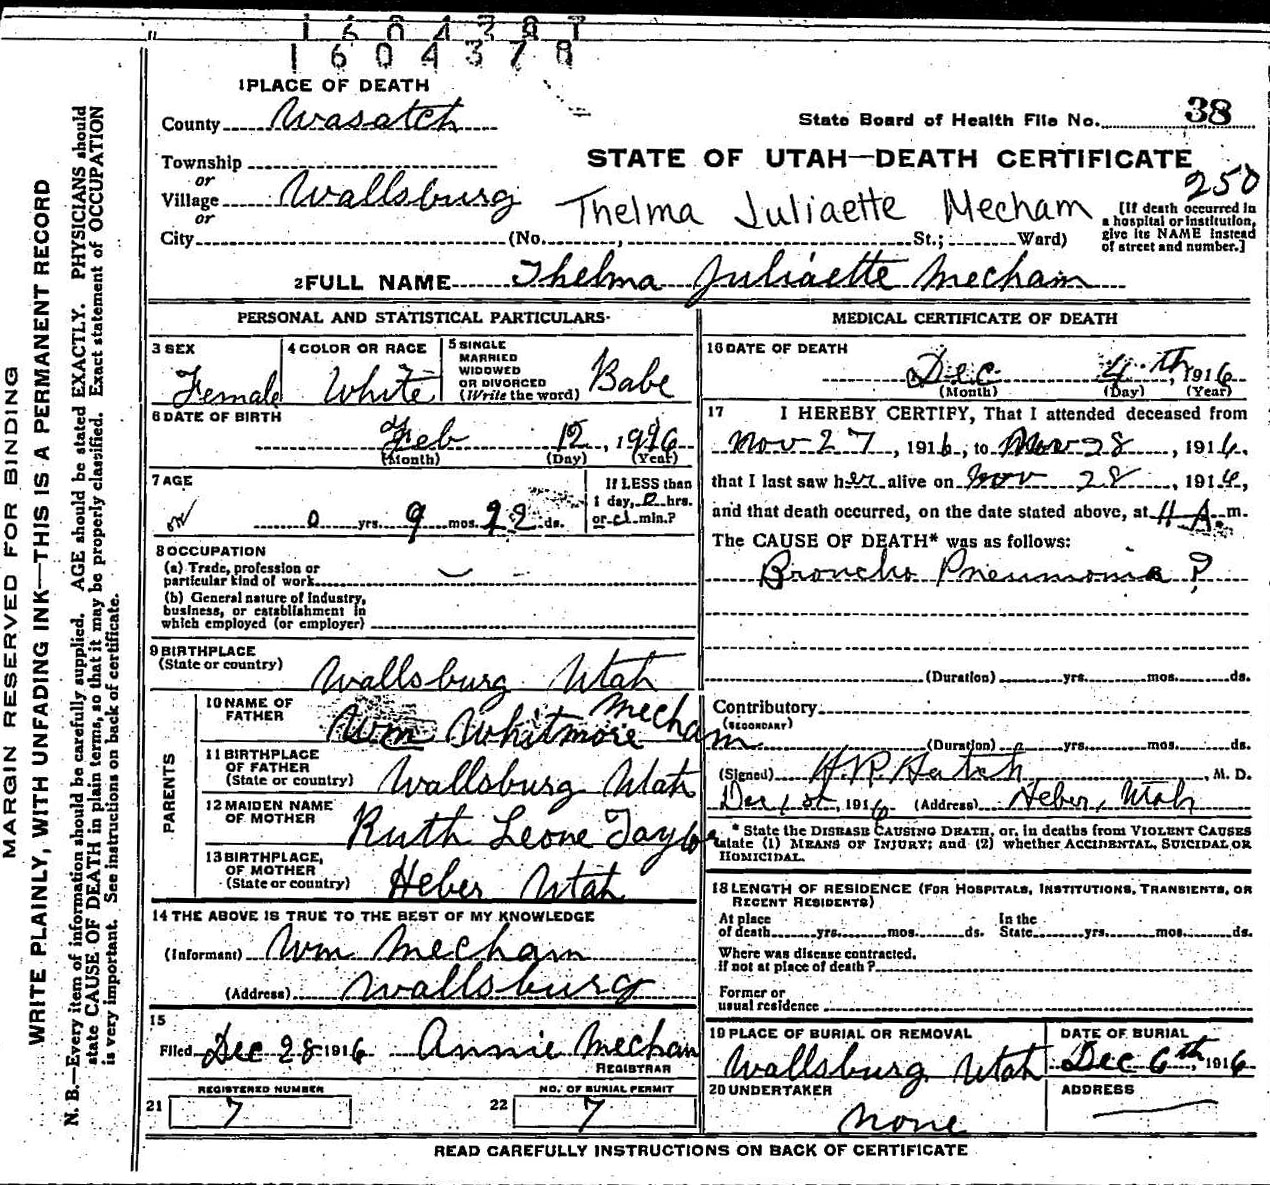 1604378
1604378
1 PLACE OF DEATH
County Wasatch
State Board of Health File No. 38
Township
STATE OF UTAH—DEATH CERTIFICATE
or
250
Village Wallsburg
Thelma Juliaette Mecham
[If death occurred in a hospital or institution, give its NAME instead of street and number.]
or
City (No. , St.; Ward)
2 FULL NAME Thelma Juliaette Mecham
PERSONAL AND STATISTICAL PARTICULARS
3 SEX
Female
4 COLOR OR RACE
White
5 SINGLE
MARRIED
WIDOWED
OR DIVORCED
(Write the word)
Babe
6 DATE OF BIRTH
Feb 12, 1916
(Month) (Day) (Year)
7 AGE
0 yrs. 9 mos. 22 ds.
If LESS than
1 day, 0 hrs.
or min.?
8 OCCUPATION
(a) Trade, profession or
particular kind of work
(b) General nature of industry,
business, or establishment in
which employed (or employer)
9 BIRTHPLACE
(State or country)
Wallsburg Utah
PARENTS
10 NAME OF
FATHER
Wm Whitmore Mecham
11 BIRTHPLACE
OF FATHER
(State or country)
Wallsburg Utah
12 MAIDEN NAME
OF MOTHER
Ruth Leone Taylor
13 BIRTHPLACE,
OF MOTHER
(State or country)
Heber Utah
14 THE ABOVE IS TRUE TO THE BEST OF MY KNOWLEDGE
(Informant) Wm Mecham
(Address) Wallsburg
15
Filed Dec 28 1916 Annie Mecham
REGISTRAR
REGISTERED NUMBER
21 7
NO. OF BURIAL PERMIT
22 7
MEDICAL CERTIFICATE OF DEATH
16 DATE OF DEATH
Dec 4th, 1916
(Month) (Day) (Year)
17 I HEREBY CERTIFY, That I attended deceased from
Nov 27, 1916, to Nov 28, 1916,
that I last saw her alive on Nov 28, 1916,
and that death occurred, on the date stated above, at 11 A. m.
The CAUSE OF DEATH* was as follows:
Broncho Pneumonia ?
(Duration) yrs. mos. ds.
Contributory
(SECONDARY)
(Duration) yrs. mos. ds.
(Signed) H.R. Hatch, M. D.
Dec 1st, 1916 (Address) Heber, Utah
* State the DISEASE CAUSING DEATH, or, in deaths from VIOLENT CAUSES
state (1) MEANS OF INJURY; and (2) whether ACCIDENTAL, SUICIDAL OR
HOMICIDAL.
18 LENGTH OF RESIDENCE (FOR HOSPITALS, INSTITUTIONS, TRANSIENTS, OR
RECENT RESIDENTS)
At place
of death yrs. mos. ds.
In the
State yrs. mos. ds.
Where was disease contracted,
if not at place of death?
Former or
usual residence
19 PLACE OF BURIAL OR REMOVAL
Wallsburg Utah
DATE OF BURIAL
Dec 6th, 1916
20 UNDERTAKER
None
ADDRESS
READ CAREFULLY INSTRUCTIONS ON BACK OF CERTIFICATE
MARGIN RESERVED FOR BINDING
WRITE PLAINLY, WITH UNFADING INK—THIS IS A PERMANENT RECORD
N. B.—Every item of information should be carefully supplied. AGE should be stated EXACTLY. PHYSICIANS should
state CAUSE OF DEATH in plain terms, so that it may be properly classified. Exact statement of OCCUPATION
is very important. See instructions on back of certificate.